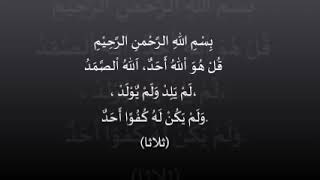 بِسْمِ اللهِ الرَّحْمنِ الرَّحِيْمِ
قُلْ هُوَ اللهُ أَحَدٌ، اَللهُ الصَّمَدُ
، لَمْ يَلِدْ وَلَمْ يُوْلَدْ
وَلَمْ يَكُنْ لَهُ كُفُوًا أَحَدٌ.
(ثلاثا)